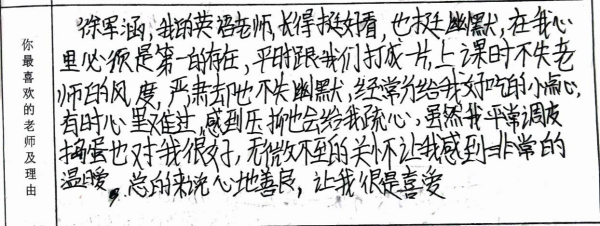 你最喜欢的老师及理由
徐军涵,我的英语老师,长得挺好看,也挺幽默,在我心
里必须是第一的存在,平时跟我们打成一片,上课时不失老
师的风度,严肃却也不失幽默,经常分给我好吃的小点心,
有时心里难过,感到压抑也会给我疏心,虽然我平常调皮
捣蛋也对我很好,无微不至的关怀让我感到非常的
温暖,总的来说心地善良,让我很是喜爱